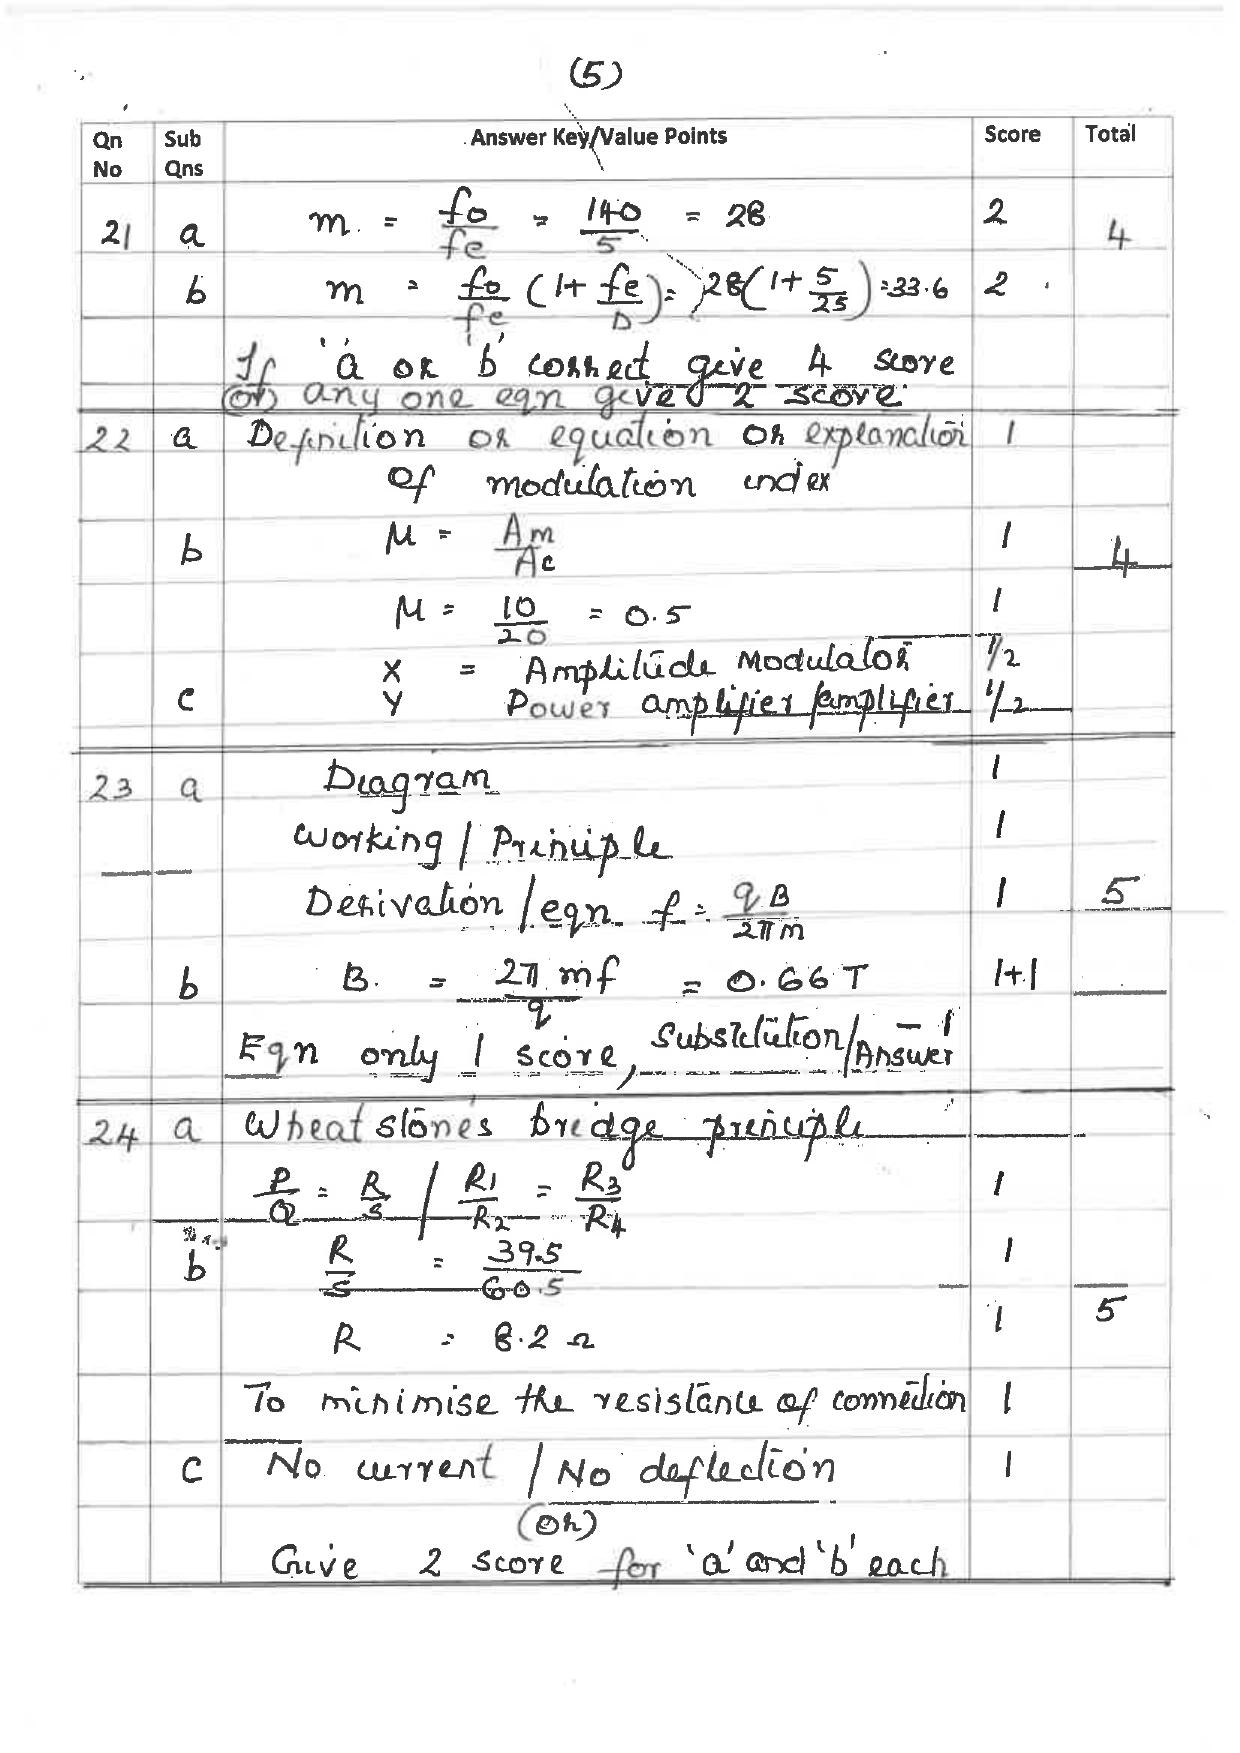 (5)
Qn No Sub Qns Answer Key/Value Points Score Total
21 a m = fo/fe = 140/5 = 28 2 4
b m = fo/fe (1+ fe/D) = 28(1+ 5/25) = 33.6 2
If 'a or 'b' correct give 4 score
(or) any one eqn give 2 score
22 a Definition or equation or explanation 1
of modulation index
b μ = Am/Ac 1 4
μ = 10/20 = 0.5 1
X = Amplitude Modulator 1/2
c Y Power amplifier/amplifier 1/2
23 a Diagram 1
Working / Principle 1
Derivation / eqn f = qB/2πm 1 5
b B. = 2π mf/q = 0.66T 1+1
Eqn only 1 score, Substitution/Answer – 1
24 a Wheatstone's bridge principle
P/Q = R/S / R1/R2 = R3/R4 1
b R/S = 39.5/60.5 1
R = 8.2 Ω 1 5
To minimise the resistance of connection 1
c No current / No deflection 1
(Or)
Give 2 score for 'a' and 'b' each